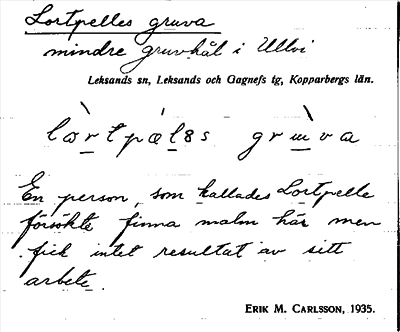 Lortpelles gruva
mindre gruvhål i Ullvi
Leksands sn, Leksands och Gagnefs tg, Kopparbergs län.
lòrtpæ̀lɐs grùva
En person, som kallades Lortpelle
försökte finna malm här men
fick intet resultat av sitt
arbete.
ERIK M. CARLSSON, 1935.